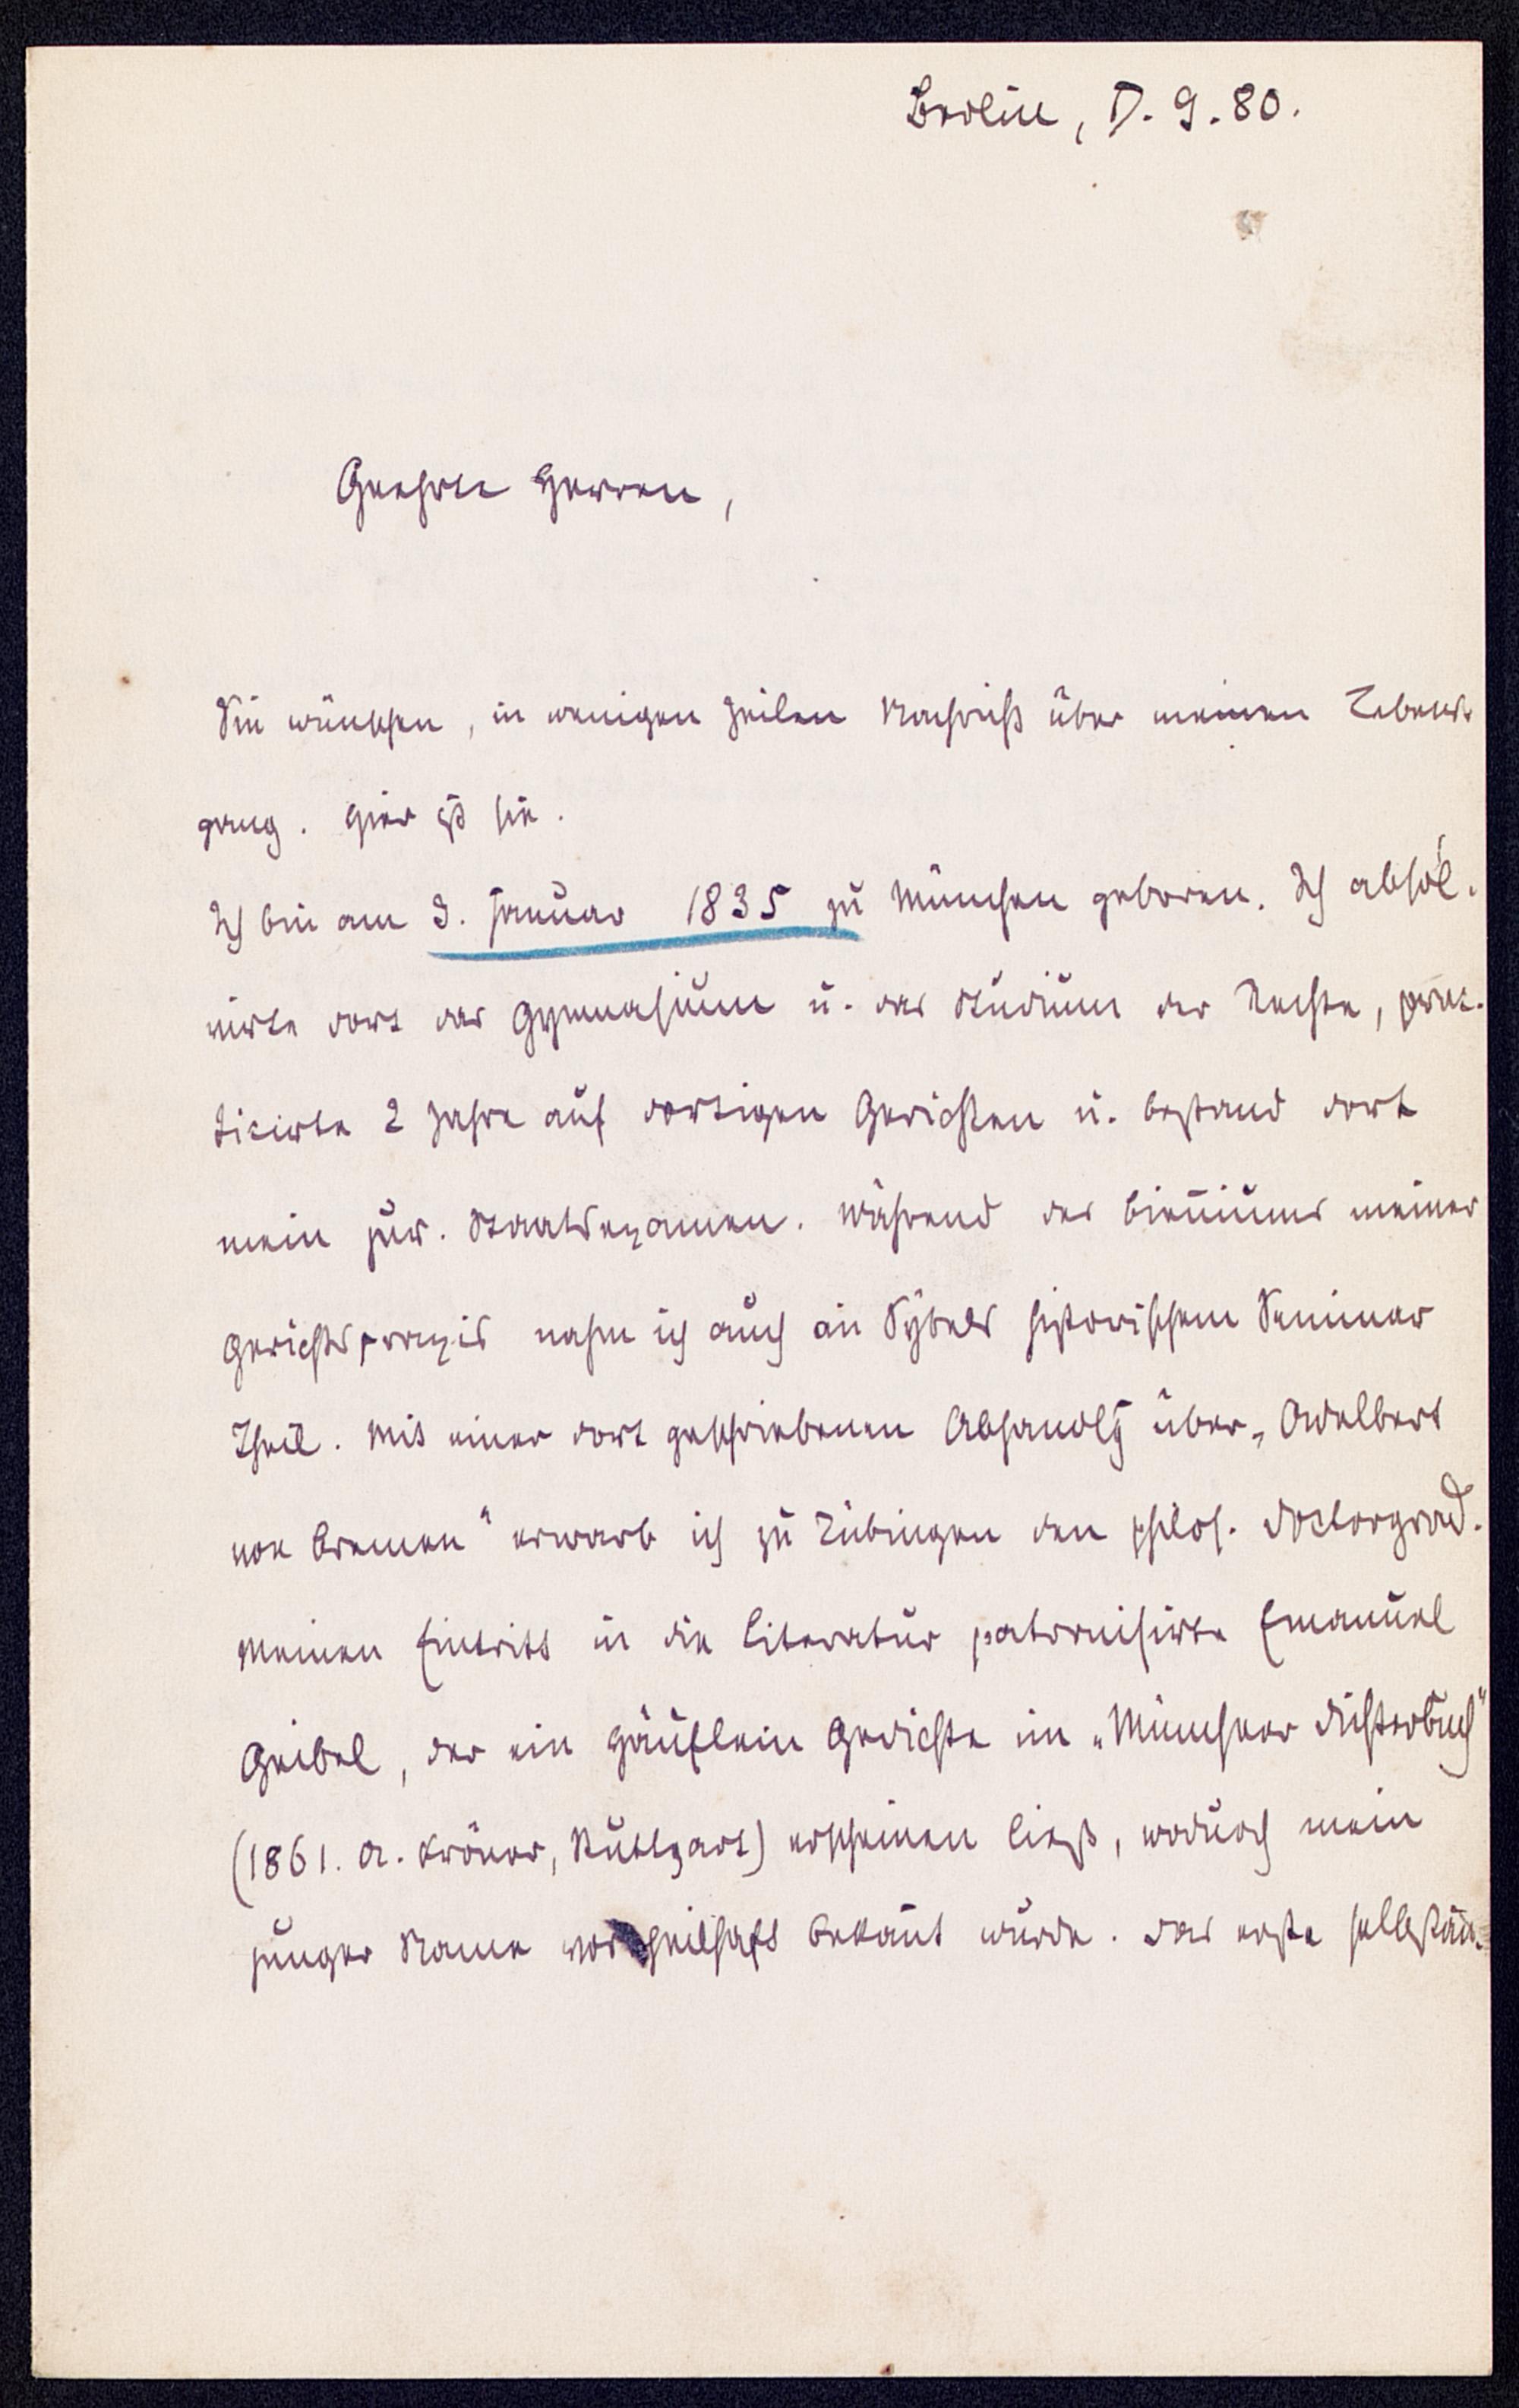 Berlin, D. 9. 80.
Geehrte Herren,
Sie wünschen, in wenigen Zeilen Nachricht über meinen Lebens-
gang. Hier ist sie.
Ich bin am 3. Januar 1835 zu München geboren. Ich absol-
virte dort das Gymnasium u. das Studium der Rechte, prac-
ticirte 2 Jahre auf dortigen Gerichten u. bestand dort
mein jur. Staatsexamen. Während des Bienniums meiner
Gerichtspraxis nahm ich auch an Sybels historischem Seminar
Theil. Mit einer dort geschriebenen Abhandlg über „Adelbert
von Bremen" erwarb ich zu Tübingen den philos. Doctorgrad.
Meinen Eintritt in die Literatur patronisirte Emanuel
Geibel, der ein Häuflein Gedichte im „Münchner Dichterbuch"
(1861. A. Kröner, Stuttgart) erscheinen ließ, wodurch mein
junger Name vortheilhaft bekannt wurde. Das erste selbstän-